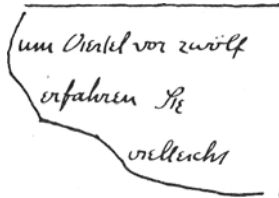 um Viertel vor zwölf
erfahren Sie
vielleicht